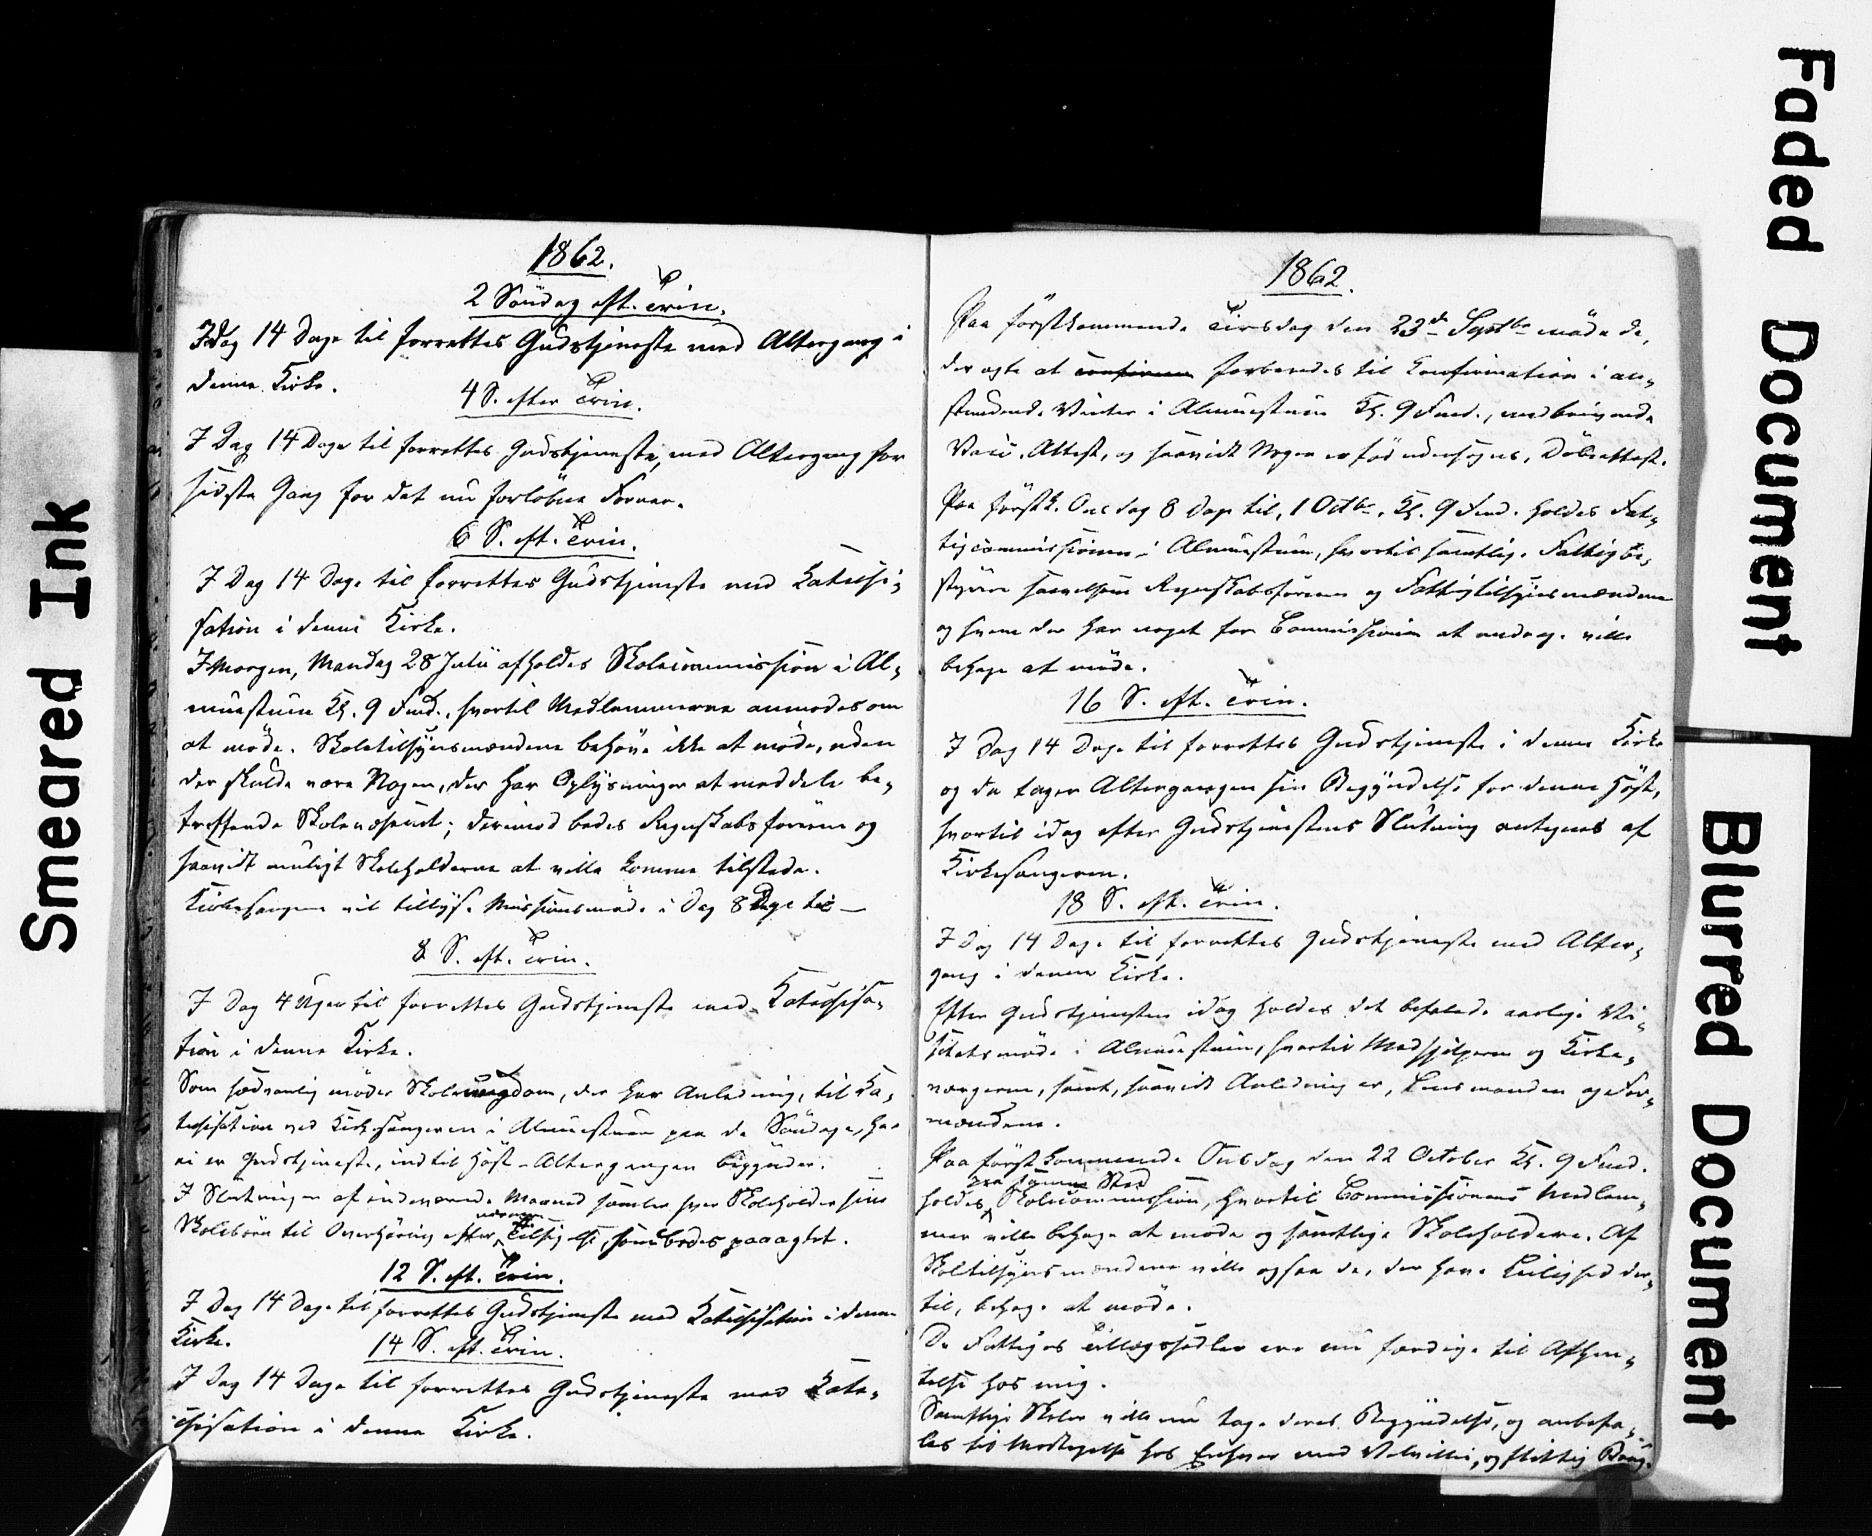 1862.
2 Söndag eft. Trin.
I Dag 14 Dage til forrettes Gudstjeneste med Altergang i
denne Kirke.
4 S. efter Trin.
I Dag 14 Dage til forrettes Gudstjeneste, med Altergang for
sidste Gang for det nu forløbne Foraar.
6 S. eft. Trin.
I Dag 14 Dage til forrettes Gudstjeneste med Katechi-
sation i denne Kirke.
I Morgen, Mandag 28 Julii afholdes Skolecommission i Al-
muestuen Kl. 9 Fmd., hvortil Medlemmerne anmodes om
at möde. Skoletilsynsmændene behöve ikke at möde, uden
der skulde være Nogen, der har Oplysninger at meddele be-
træffende Skolevæsenet; derimod bedes Regnskabsföreren og
saavidt muligt Skoleholderne at ville komme tilstede.
Kirkesangeren vil tillyse Missionsmöde i Dag 8 Dage til —
8 S. eft. Trin.
I Dag 4 Uger til forrettes Gudstjeneste med Katechisa-
tion i denne Kirke.
Som sædvanlig møder Skoleungdom, der har Anledning, til Ka-
techisation ved Kirkesangeren i Almuestuen paa de Söndage, her
ei er Gudstjeneste, indtil Höst-Altergangen begynder.
I Slutningen af indeværende Maaned samler hver Skoleholder sine
Skolebörn til Overhöring efter nærmere Tilsigelse, som bedes paaagtet.
12 S. eft. Trin.
I Dag 14 Dage til forrettes Gudstjeneste med Katechisation i denne
Kirke.
14 S. eft. Trin.
I Dag 14 Dage til forrettes Gudstjeneste med Kate-
chisation i denne Kirke.
1862.
Paa förstkommende Tirsdag den 23de Septbr möde de,
der agte at confirme forberedes til Konfirmation i an-
stundende Vinter i Almuestuen Kl. 9 Fmd., medbringende
Vacc. Attest, og saavidt Nogen er fød udensogns, Döbeattest.
Paa förstk. Onsdag 8 Dage til, 1 Octbr. Kl. 9 Fmd. holdes Fat-
tigcommission i Almuestuen, hvortil samtlige Fattigbe-
styrere saavelsom Regnskabsföreren og Fattigtilsynsmændene
og hvem der har noget for Commissionen at andrage ville
behage at möde.
16 S. eft. Trin.
I Dag 14 Dage til forrettes Gudstjeneste i denne Kirke
og da tager Altergangen sin Begyndelse for denne Höst,
hvortil idag efter Gudstjenestens Slutning antegnes af
Kirkesangeren.
18 S. eft. Trin.
I Dag 14 Dage til forrettes Gudstjeneste med Alter-
gang i denne Kirke.
Efter Gudstjenesten idag holdes det befalede aarlige Vi-
sitatsmöde i Almuestuen, hvortil Medhjelperne og Kirke-
værgerne, samt, saavidt Anledning er, Lensmanden og For-
mændene.
Paa förstkommende Onsdag den 22 October Kl. 9 Fmd.
holdes paa samme Sted Skolecommission, hvortil Commissionens Medlem-
mer ville behage at möde og samtlige Skoleholdere. Af
Skoletilsynsmændene ville ogsaa de, der have Leilighed der-
til, behage at möde.
De Fattiges Tillægssedler ere nu færdige til Afhen-
telse hos mig.
Samtlige Skoler ville nu tage deres Begyndelse, og anbefa-
les til Modtagelse hos Enhver med Velvillie, og flittig Brug.
Smeared Ink
Faded Document
Blurred Document